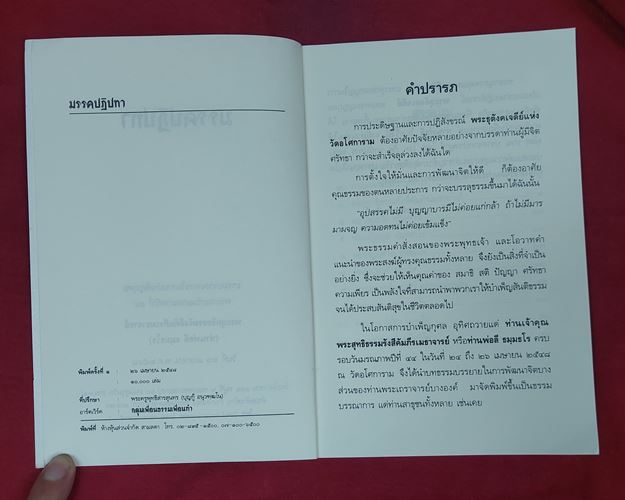 มรรคปฏิปทา
พิมพ์ครั้งที่ ๑ : ๒๖ เมษายน ๒๕๔๘
๑๐,๐๐๐ เล่ม
ที่ปรึกษา : พระครูพุทธิสารสุนทร (บุญกู้ อนุวฑฺฒโน)
อาร์ตเวิร์ค : กลุ่มเพื่อนธรรมเพื่อนทำ
พิมพ์ที่ : ห้างหุ้นส่วนจำกัด สามลดา โทร.
คำปรารภ
การประดิษฐานและการปฏิสังขรณ์ พระธุตังคเจดีย์แห่ง
วัดอโศการาม ต้องอาศัยปัจจัยหลายอย่างจากบรรดาท่านผู้มีจิต
ศรัทธา กว่าจะสำเร็จลุล่วงลงได้ฉันใด
การตั้งใจให้มั่นและการพัฒนาจิตให้ดี ก็ต้องอาศัย
คุณธรรมของตนหลายประการ กว่าจะบรรลุธรรมขึ้นมาได้ฉันนั้น
"อุปสรรคไม่มี บุญญาบารมีไม่ค่อยแก่กล้า ถ้าไม่มีมาร
มาผจญ ความอดทนไม่ค่อยเข้มแข็ง"
พระธรรมคำสั่งสอนของพระพุทธเจ้า และโอวาทคำ
แนะนำของพระสงฆ์ผู้ทรงคุณธรรมทั้งหลาย จึงยังเป็นสิ่งที่จำเป็น
อย่างยิ่ง ซึ่งจะช่วยให้เห็นคุณค่าของ สมาธิ สติ ปัญญา ศรัทธา
ความเพียร เป็นพลังใจที่สามารถนำพาพวกเราให้บำเพ็ญสันติธรรม
จนได้ประสบสันติสุขในชีวิตตลอดไป
ในโอกาสการบำเพ็ญกุศล อุทิศถวายแด่ ท่านเจ้าคุณ
พระสุทธิธรรมรังสีคัมภีรเมธาจารย์ หรือท่านพ่อลี ธมฺมธโร ครบ
รอบวันมรณภาพปีที่ ๔๔ ในวันที่ ๒๔ ถึง ๒๖ เมษายน ๒๕๔๘
ณ วัดอโศการาม จึงได้นำบทธรรมบรรยายในการพัฒนาจิตบาง
ส่วนของท่านพระเถราจารย์บางองค์ มาจัดพิมพ์ขึ้นเป็นธรรม
บรรณาการ แด่ท่านสาธุชนทั้งหลาย เช่นเคย